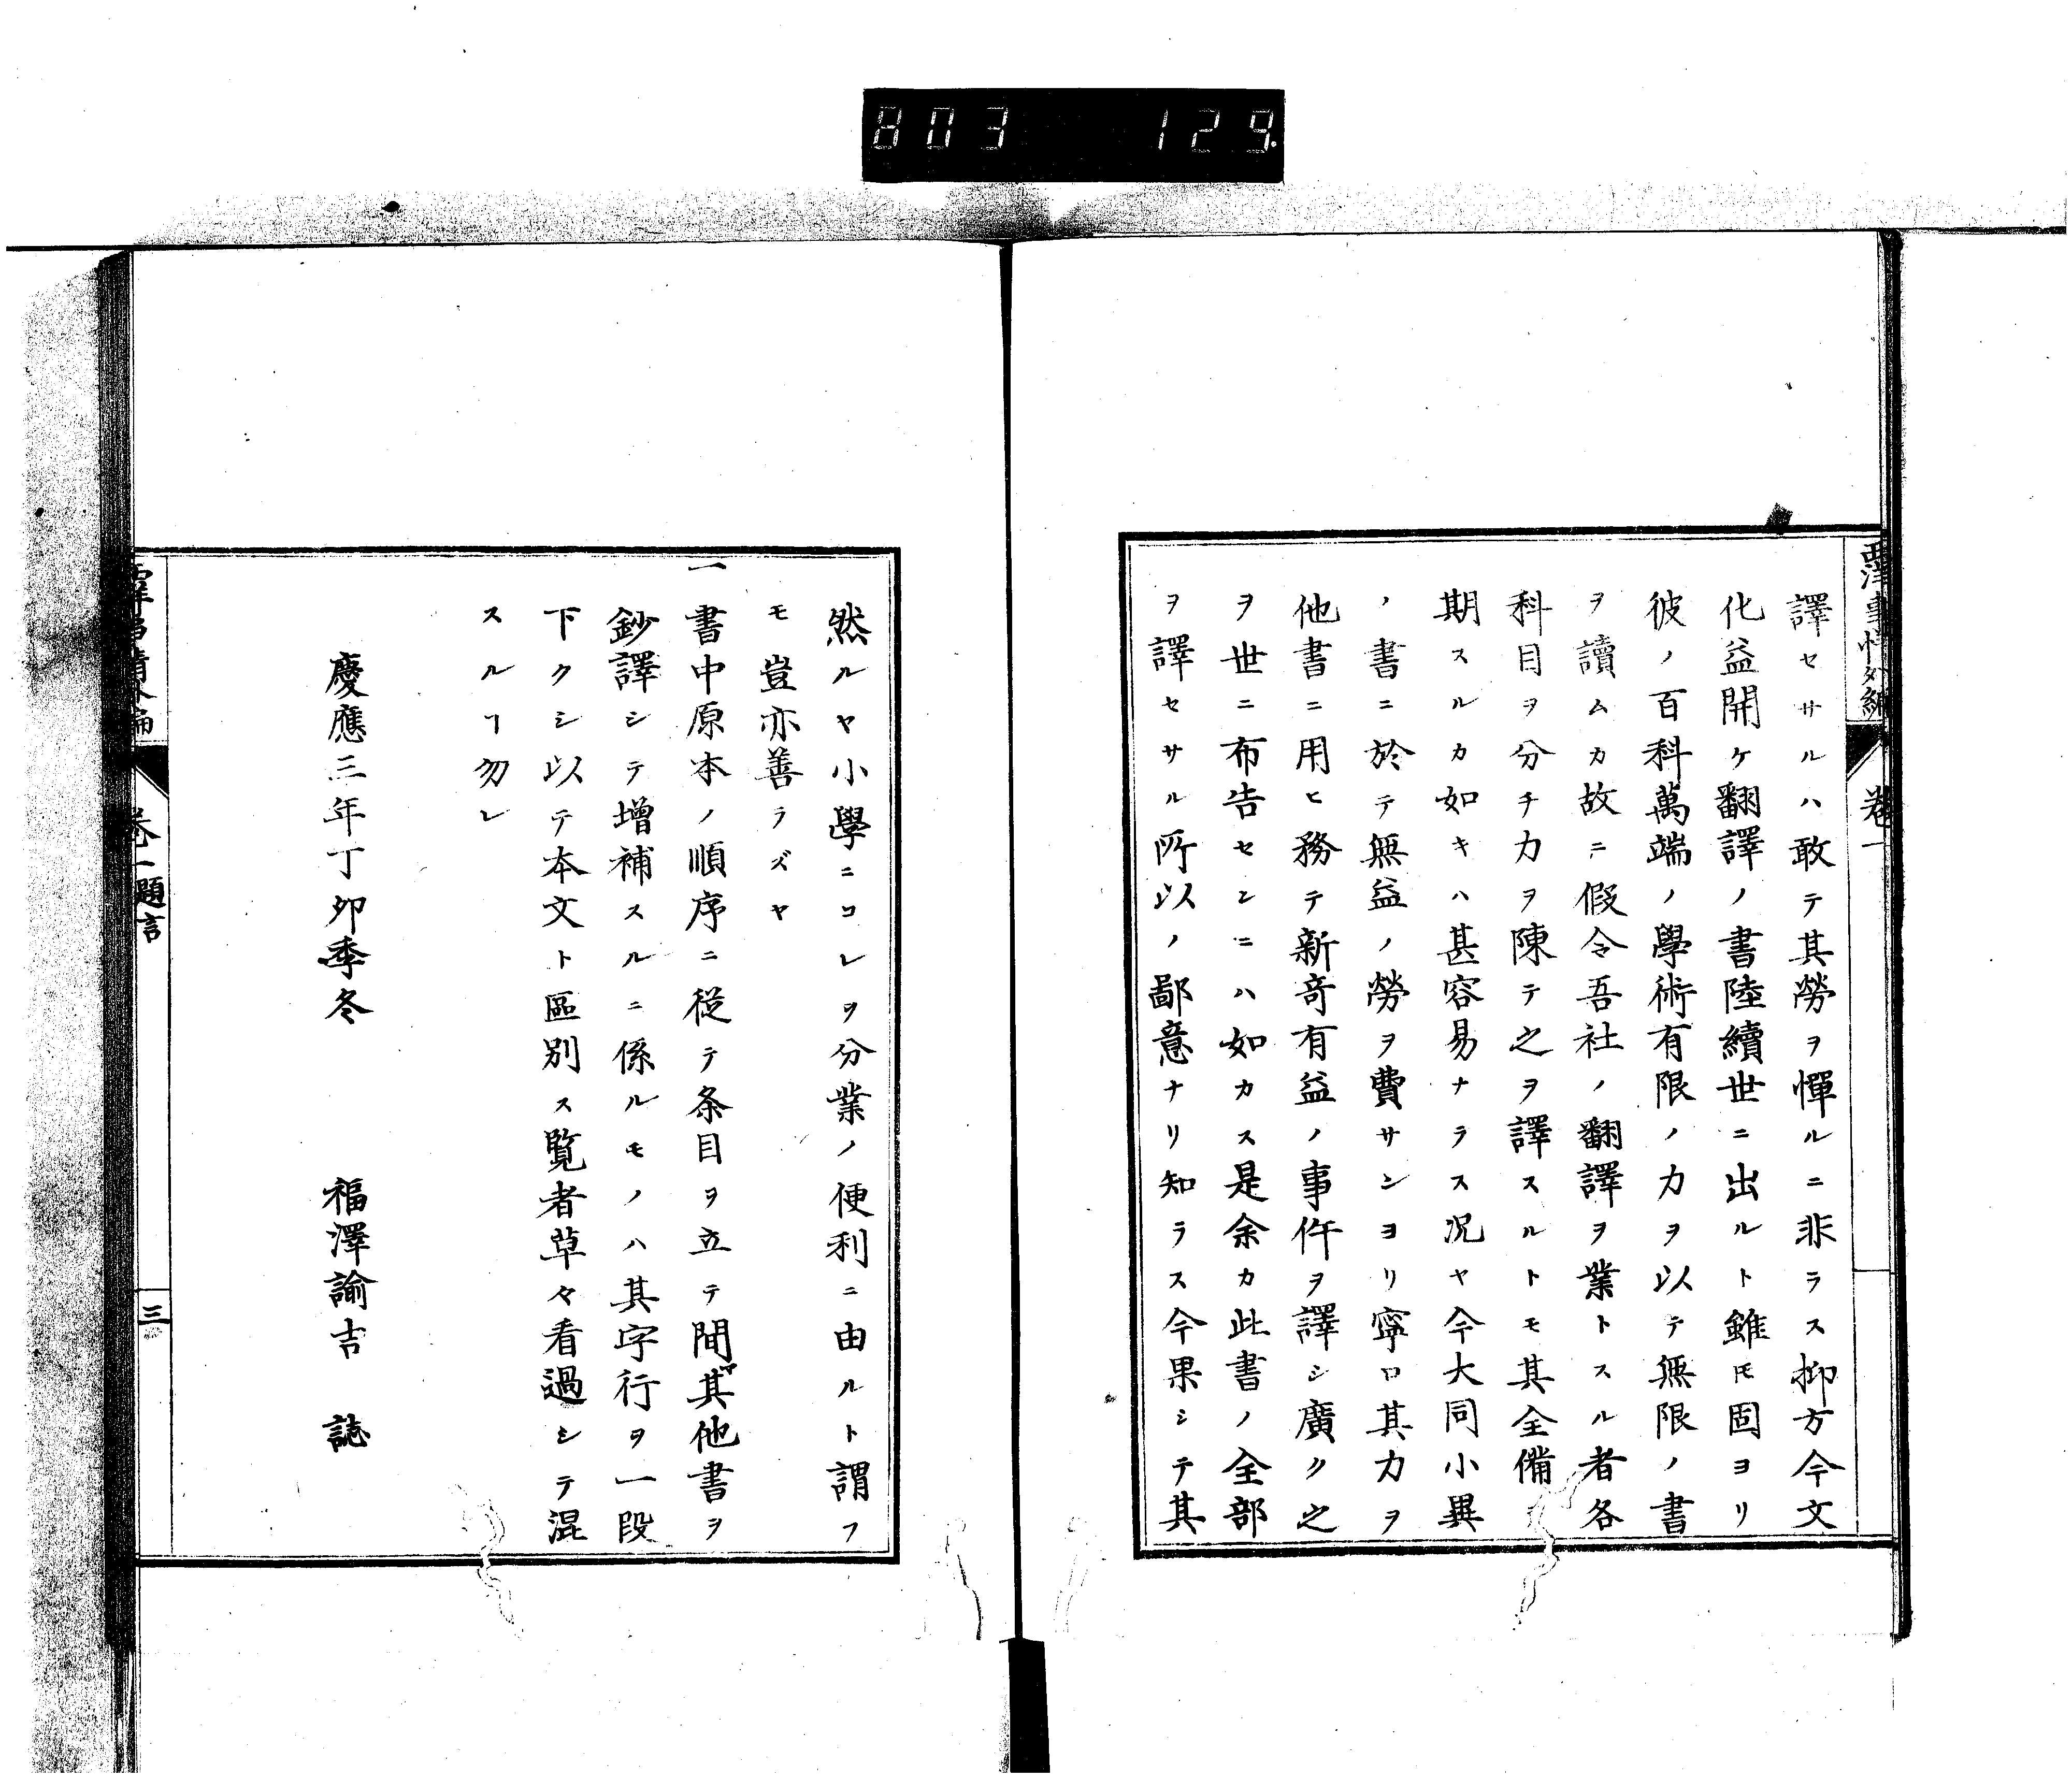 803 129
西洋事情外編 卷一
譯セサルハ敢テ其勞ヲ憚ルニ非ラス抑方今文
化益開ケ翻譯ノ書陸續世ニ出ルト雖𪜈固ヨリ
彼ノ百科萬端ノ學術有限ノ力ヲ以テ無限ノ書
ヲ讀ムカ故ニ假令吾社ノ翻譯ヲ業トスル者各
科目ヲ分チ力ヲ陳テ之ヲ譯スルトモ其全備ヲ
期スルカ如キハ甚容易ナラス况ヤ今大同小異
ノ書ニ於テ無益ノ勞ヲ費サンヨリ寧ロ其力ヲ
他書ニ用ヒ務テ新奇有益ノ事件ヲ譯シ廣ク之
ヲ世ニ布告センニハ如カス是余カ此書ノ全部
ヲ譯セサル所以ノ鄙意ナリ知ラス今果シテ其
然ルヤ小學ニコレヲ分業ノ便利ニ由ルト謂フ
モ豈亦善ラズヤ
一書中原本ノ順序ニ從テ条目ヲ立テ間其他書ヲ
鈔譯シテ增補スルニ係ルモノハ其字行ヲ一段
下クシ以テ本文ト區別ス覧者草々看過シテ混
スルヿ勿レ
慶應三年丁卯季冬 福澤諭吉 誌
卷一題言 三